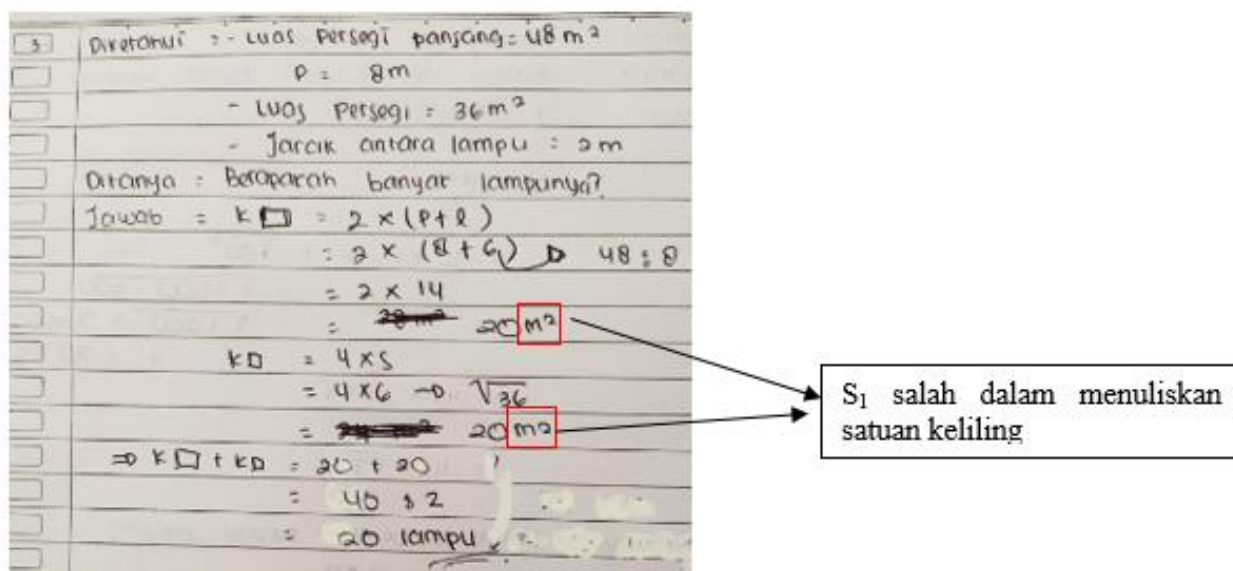 3 Diketahui : - Luas persegi panjang = 48 m²
P = 8m
- Luas persegi = 36 m²
- Jarak antara lampu = 2 m
Ditanya = Berapakah banyak lampunya?
Jawab = K▭ = 2 × (P+l)
= 2 × (8 + 6) → 48 : 8
= 2 × 14
= 20 m²
K□ = 4 × s
= 4 × 6 → √36
= 20 m²
⇒ K▭ + K□ = 20 + 20
= 40 : 2
= 20 lampu
S₁ salah dalam menuliskan
satuan keliling